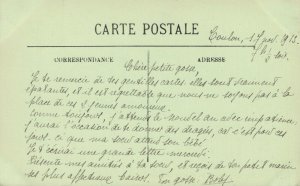 CARTE POSTALE
Toulon, 17 nov. 1913
CORRESPONDANCE
ADRESSE
Chère petite gosse,
Je te remercie de tes gentilles cartes elles sont vraiment
épatantes, et il est regrettable que nous ne soyons pas à la
place de ces 2 jeunes amoureux.
comme toujours, j'attends le noël an avec impatience,
j'aurai l'occasion de te donner des dragées, car c'est pour ces
jours. ci que ma sœur attend son bébé.
Je t'écrirai une grande lettre mercredi.
Présente mes amitiés à ta sœur, et reçois de ton petit marin
ses plus affectueux baisers. Ton gosse.